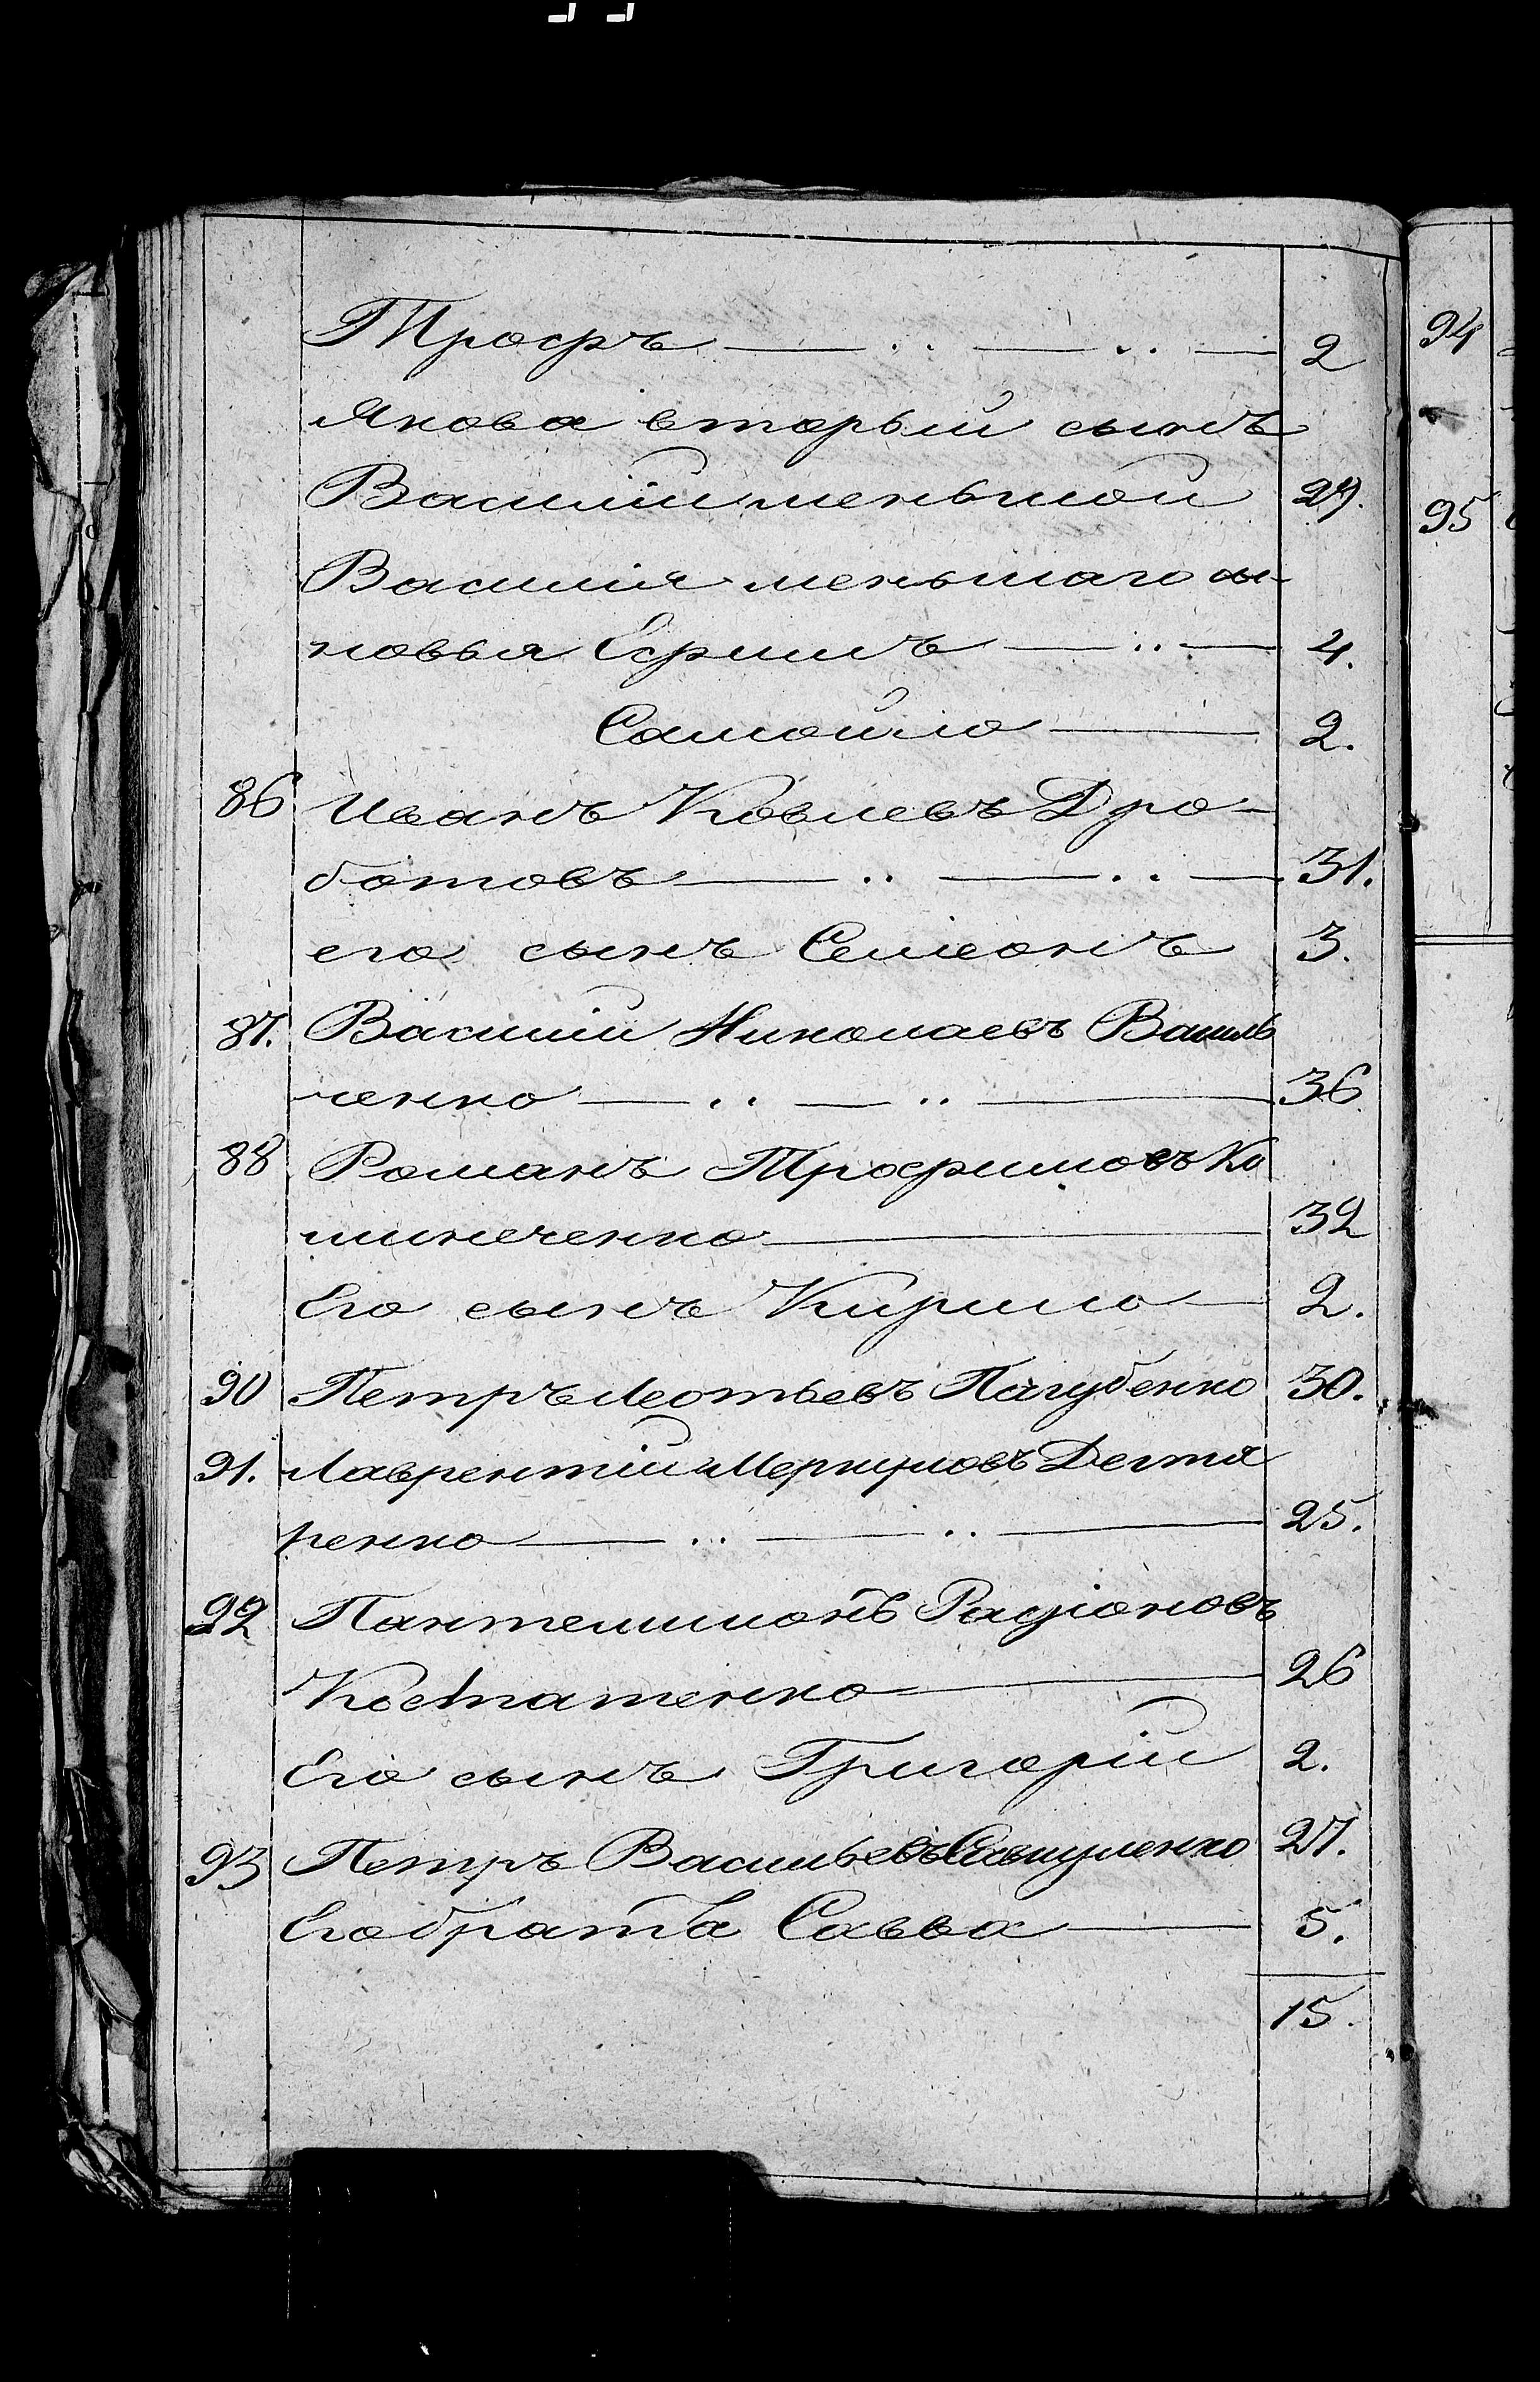 Трофъ — .. — .. — 2
Якова вторый сынъ
Василій меньшой 29.
Василія меньшаго сы-
новья Ефимъ — .. — 4.
Самойло — 2.
86 Иванъ Ковлевъ Дро-
ботовъ — .. — .. — 31.
его сынъ Семенъ 3.
87. Василій Николаевъ Василь
ченко — .. — .. — 36
88 Романъ Трофимовъ Ко
миниченко — 32
Его сынъ Кирило — 2.
90 Петръ Леотьевъ Пагубенко 30.
91. Лаврентій Меркуловъ Дегтя
ренко — .. — .. — 25.
92 Пантелимонъ Радіоновъ
Костатенко — 26
Его сынъ Григорій 2.
93 Петръ Васильевъ 27.
Его брата Савва — 5.
15.
94
95